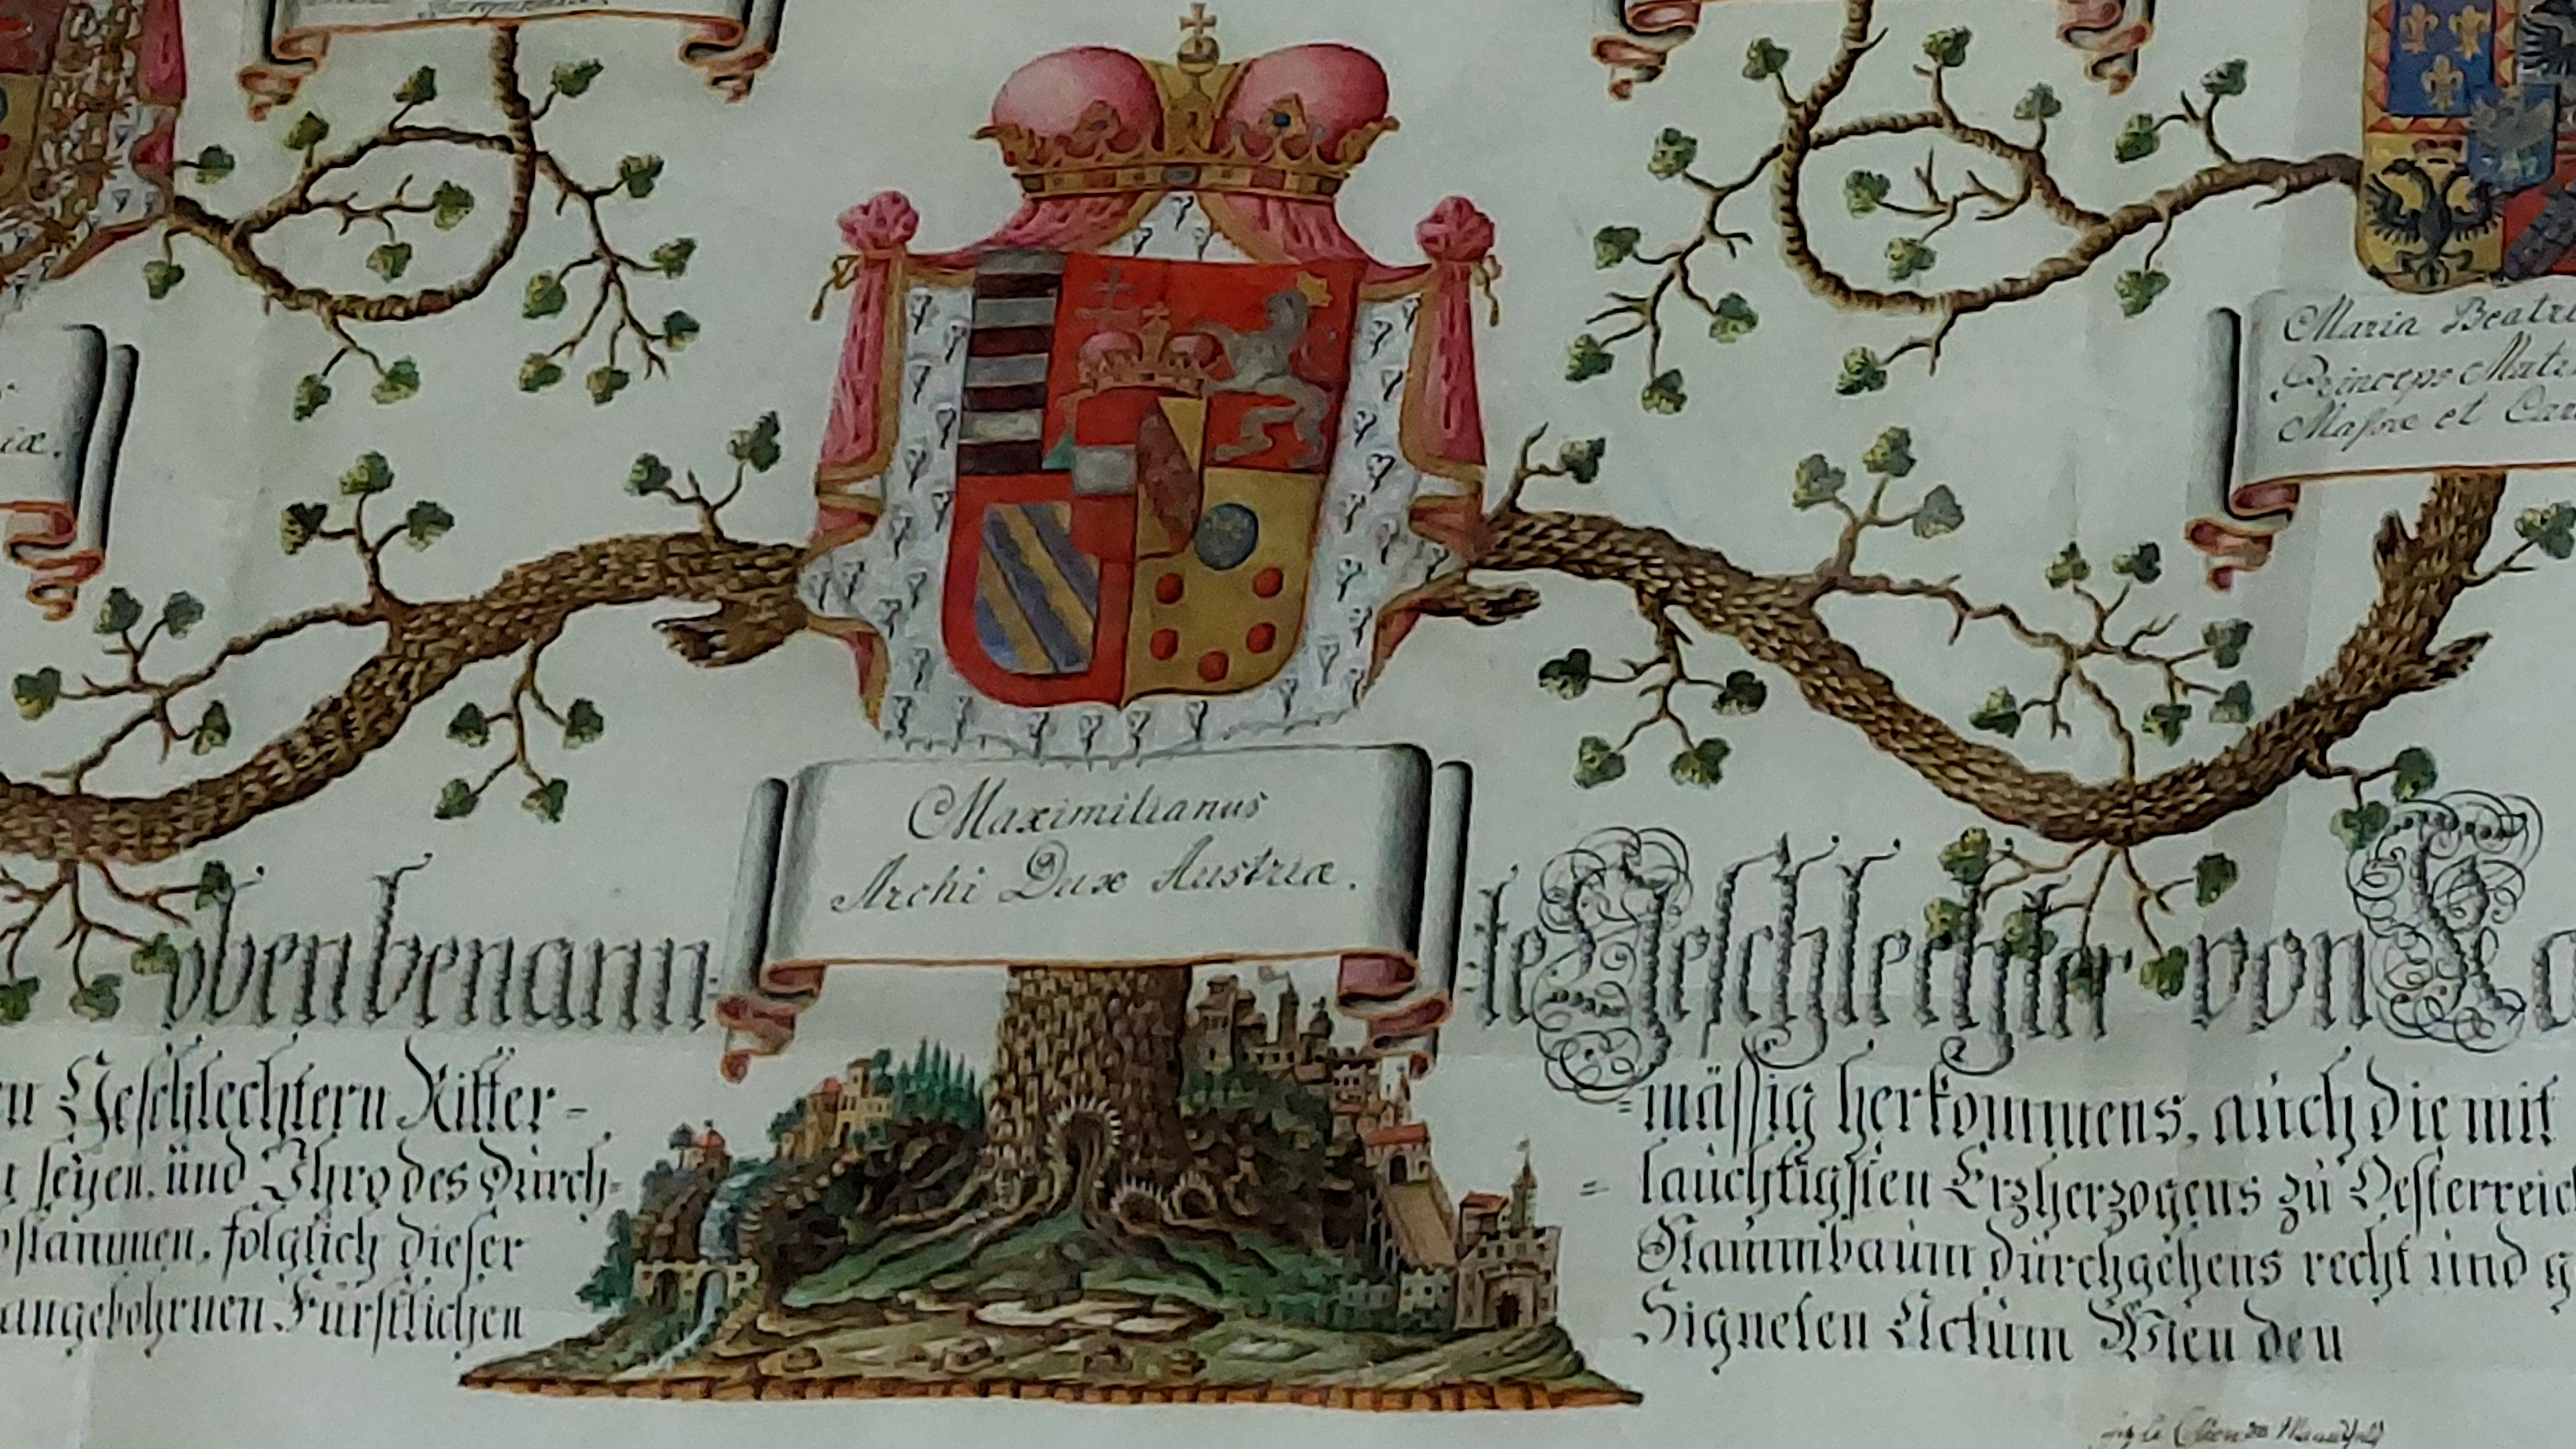 iæ.
Maria Beatri
Princeps Mut
Maſsæ et Car
Maximilianus
Archi Dux Austriæ.
obenbenann=te Geſchlechter von
n Geſchlechtern Ritter= =mäſſig herkommens, auch die mit
ſeyen, und Ihro des Durch= =lauchtigſten Erzherzogens zu Oeſterreic
bſtammen, folglich dieſer Stammbaum durchgehens recht und g
angebohrnen Fürſtlichen Signeten Actum Wien den